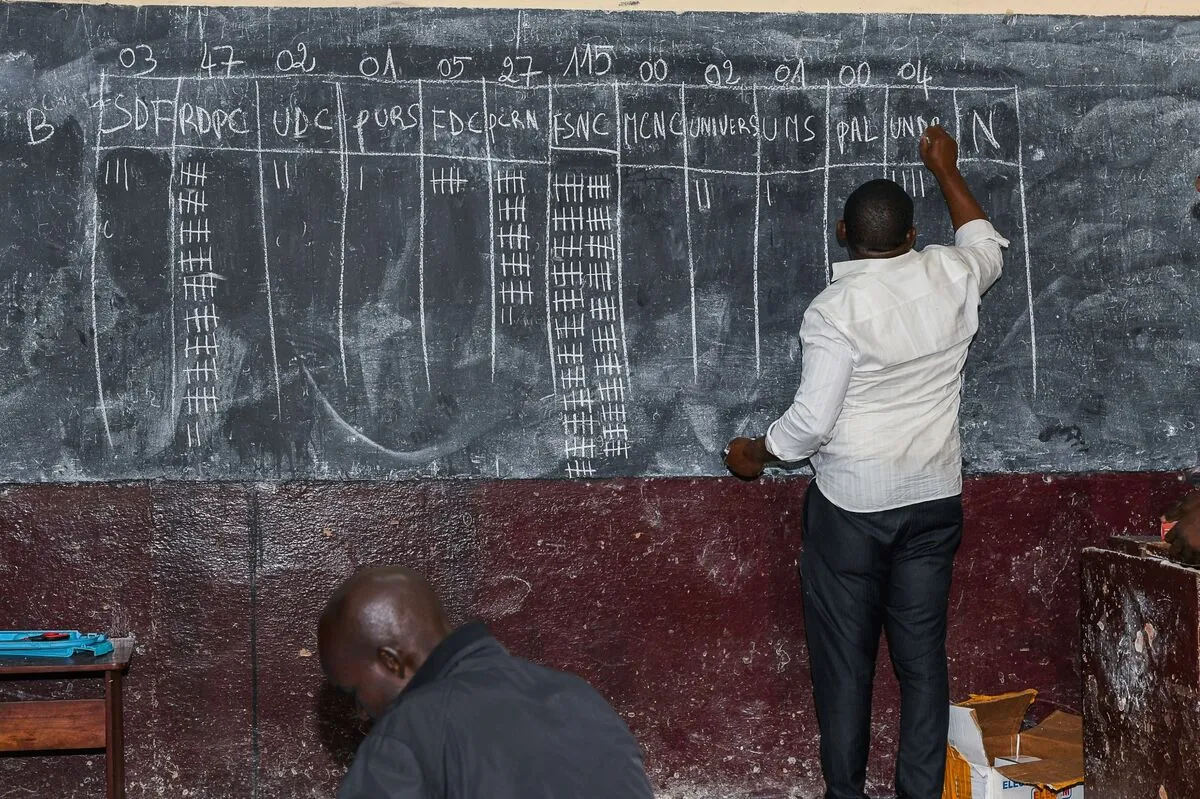 03 47 02 01 05 27 115 00 02 01 00 04
B SDF RDPC UDC PURS FDC PCRN FSNC MCNC UNIVERS UMS PAL N